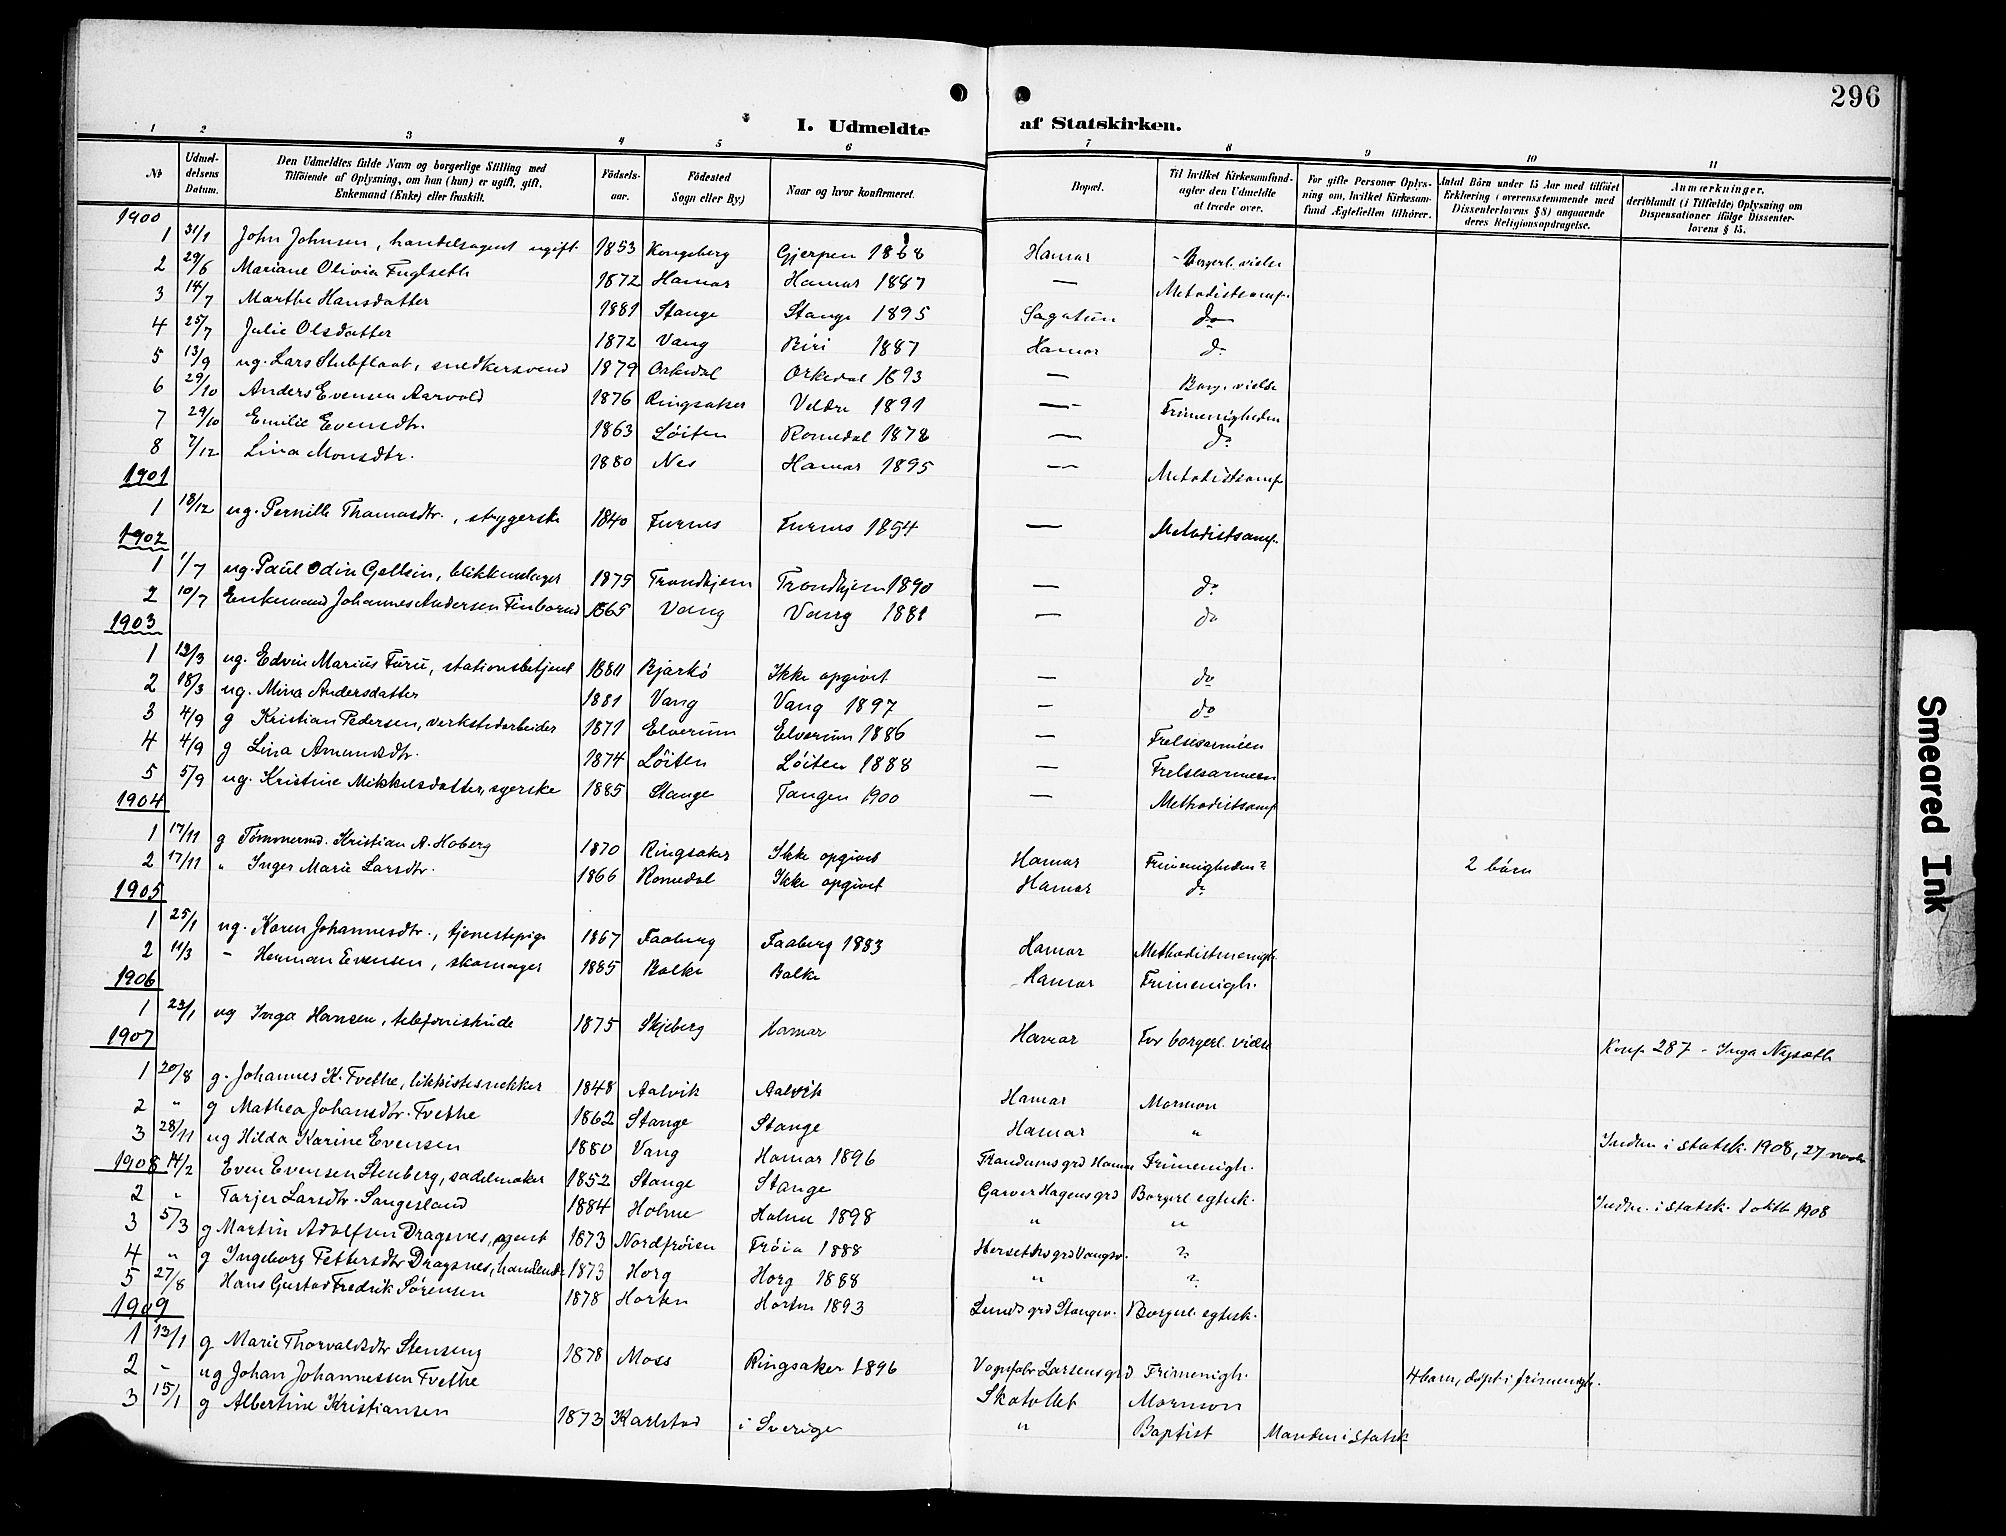 296
I. Udmeldte af Statskirken.
1 2 3 4 5 6 7 8 9 10 11
No
Udmel-delsens Datum.
Den Udmeldtes fulde Navn og borgerlige Stilling med Tilföiende af Oplysning, om han (hun) er ugift, gift, Enkemand (Enke) eller fraskilt.
Födsels-aar.
Födested Sogn eller By)
Naar og hvor konfirmeret.
Bopæl.
Til hvilket Kirkesamfund agter den Udmeldte at træde over.
For gifte Personer Oplys-ning om, hvilket Kirkesam-fund Ægtefællen tilhörer.
Antal Börn under 15 Aar med tilföiet Erklæring i overensstemmende med Dissenterlovens § 8) angaaende deres Religionsopdragelse.
Anmærkninger. deriblandt (i Tilfælde) Oplysning om Dispensationer ifölge Dissenter-lovens § 15.
1900
1 31/1 John Johnsen, handelsagent ugift 1853 Kongsberg Gjerpen 1868 Hamar - Borgerl. vielse
2 29/6 Mariane Olivia Fuglseth 1872 Hamar Hamar 1887 — Metodistsamf.
3 14/7 Marthe Hansdatter 1881 Stange Stange 1895 Sagatun do
4 25/7 Julie Olsdatter 1872 Vang Biri 1887 Hamar do
5 13/9 ug. Lars Stubflaat, snedkersvend 1879 Orkedal Orkedal 1893 — Borg. vielse
6 29/10 Anders Evensen Aarvold 1876 Ringsaker Veldre 1891 — Frimenigheden
7 29/10 Emilie Evensdtr. 1863 Löiten Romedal 1878 — do
8 7/12 Lina Monsdtr. 1880 Nes Hamar 1895 — Metodistsamf
1901
1 18/12 ug. Pernille Thomasdtr., strygerske 1840 Furnes Furnes 1854 — Metodistsamf.
1902
1 1/7 ug. Paul Odin Gellein, blikkenslager 1875 Trondhjem Trondhjem 1890 — do
2 10/7 Enkemand Johannes Andersen 1865 Vang Vang 1881 — do
1903
1 12/3 ug. Edvin Marius Furu, stationsbetjent 1881 Bjarkö Ikke opgivet — do
2 18/3 ug. Mina Andersdatter 1881 Vang Vang 1897 — do
3 4/9 g Kristian Pedersen, verkstedarbeider 1871 Elverum Elverum 1886 — Frelsesarméen
4 4/9 g Lina Amundsdtr. 1874 Löiten Löiten 1888 — Frelsesarmeen
5 5/9 ug. Kristine Mikkelsdatter, syerske 1885 Stange Tangen 1900 — Methodistsamf
1904
1 17/11 g Tömmermd. Kristian A. Hoberg 1870 Ringsaker Ikke opgivet Hamar Frimenigheden? 2 börn
2 17/11 " Inger Marie Larsdtr. 1866 Romedal Ikke opgivet Hamar do
1905
1 25/1 ug. Karen Johannesdtr., tjenestepige 1867 Faaberg Faaberg 1883 Hamar Methodistmenigh.
2 11/3 - Herman Evensen, skomager 1885 Balke Balke Hamar Frimenigh.
1906
1 23/1 ug Inga Hansen, telefonistinde 1875 Skjeberg Hamar Hamar For borgerl. vielse Konf. 287 - Inga Nysæth
1907
1 20/8 g. Johannes H. Tvethe, likkistesnekker 1848 Aalvik Aalvik Hamar Mormon
2 " g Mathea Johansdtr. Tvethe 1862 Stange Stange Hamar "
3 28/11 ug Hilda Karine Evensen 1880 Vang Hamar 1896 Trandumsgrd Hamar Frimenigh. Indm. i statsk. 1908, 27 novbr
1908 14/2 Even Evensen Stenberg, sadelmaker 1852 Stange Stange Garver Hagens grd Borgerl. egtesk.
2 " Tarjer Larsdtr. Sangesland 1884 Holme Holme 1898 " " Indm. i statsk. 1 oktb 1908
3 5/3 g Martin Adolfsen Dragsnes, agent 1873 Nordfröien Fröia 1888 Herseths grd Vangsv. ?
4 " g Ingeborg Pettersdtr Dragsnes, 1873 Horg Horg 1888 " ?
5 27/8 Hans Gustav Fredrik Sörensen 1878 Horten Horten 1893 Lunds grd Stangev. Borgerl. egtesk.
1909
1 13/1 g Marie Thorvaldsdtr Stenseng 1878 Moss Ringsaker 1896 Vognfabr Larsens grd Frimenigh. 4 barn, döpt i frimenigh.
2 - ug Johan Johannessen Tvethe Skatollet Mormon
3 15/1 g Albertine Kristiansen 1873 Karlstad i Sverige " Baptist Manden i statsk
Smeared Ink